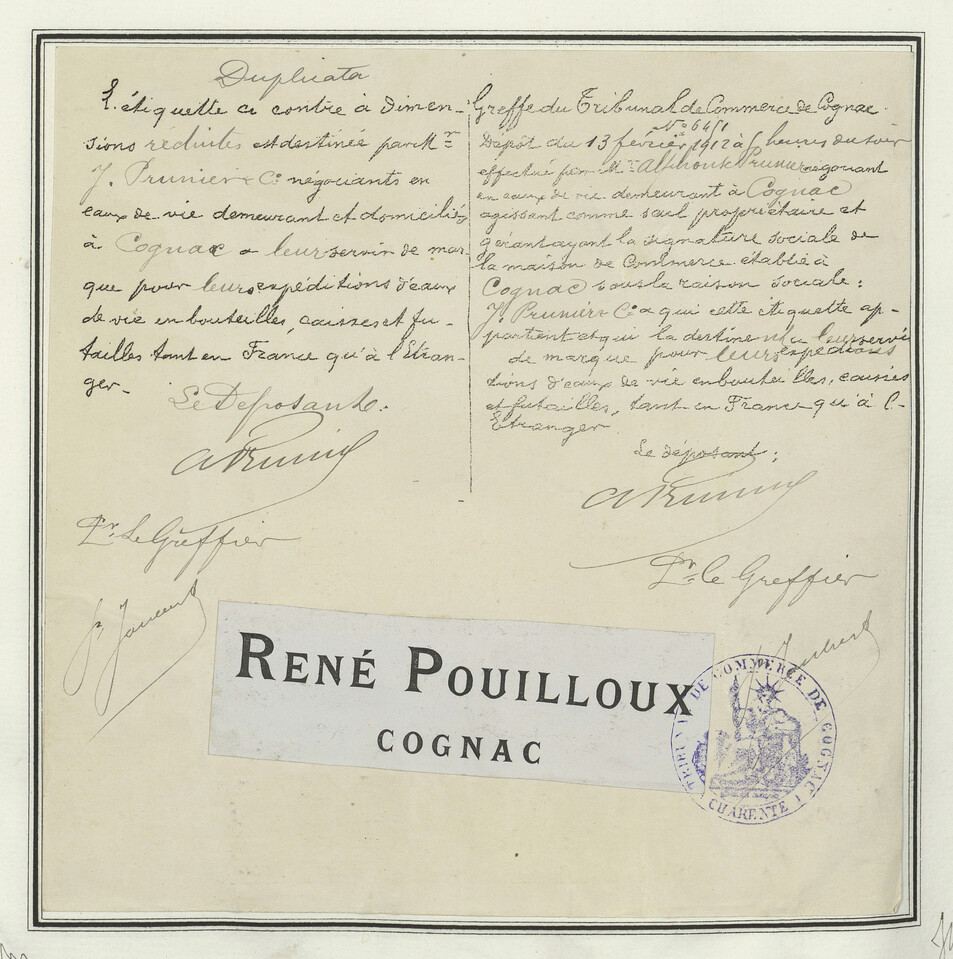 Duplicata
L'étiquette ci contre à dimen-
sions réduites est destinée par Mr
J. Prunier & Co négociants en
eaux de vie demeurant et domiciliés
à Cognac à leur servir de mar-
que pour leurs expéditions d'eaux
de vie en bouteilles, caisses et fu-
tailles tant en France qu'à l'Etran-
ger-
Le Déposant.
A Prunier
Pr Le Greffier
Greffe du Tribunal de Commerce de Cognac.
No 6451
Dépôt du 13 février 1912 à 5 heures du soir
effectué par Mr Alphonse Prunier négociant
en eaux de vie demeurant à Cognac
agissant comme seul propriétaire et
gérant ayant la signature sociale de
la maison de Commerce établie à
Cognac sous la raison sociale:
J. Prunier & Co a qui cette étiquette ap-
partient et qui la destine à leur servir
de marque pour leurs expéditions
tions d'eaux de vie en bouteilles, caisses
et futailles, tant en France qu'à l'-
Etranger.
Le déposant;
A Prunier
Pr le Greffier
RENÉ POUILLOUX
COGNAC
TRIBUNAL DE COMMERCE DE COGNAC
CHARENTE